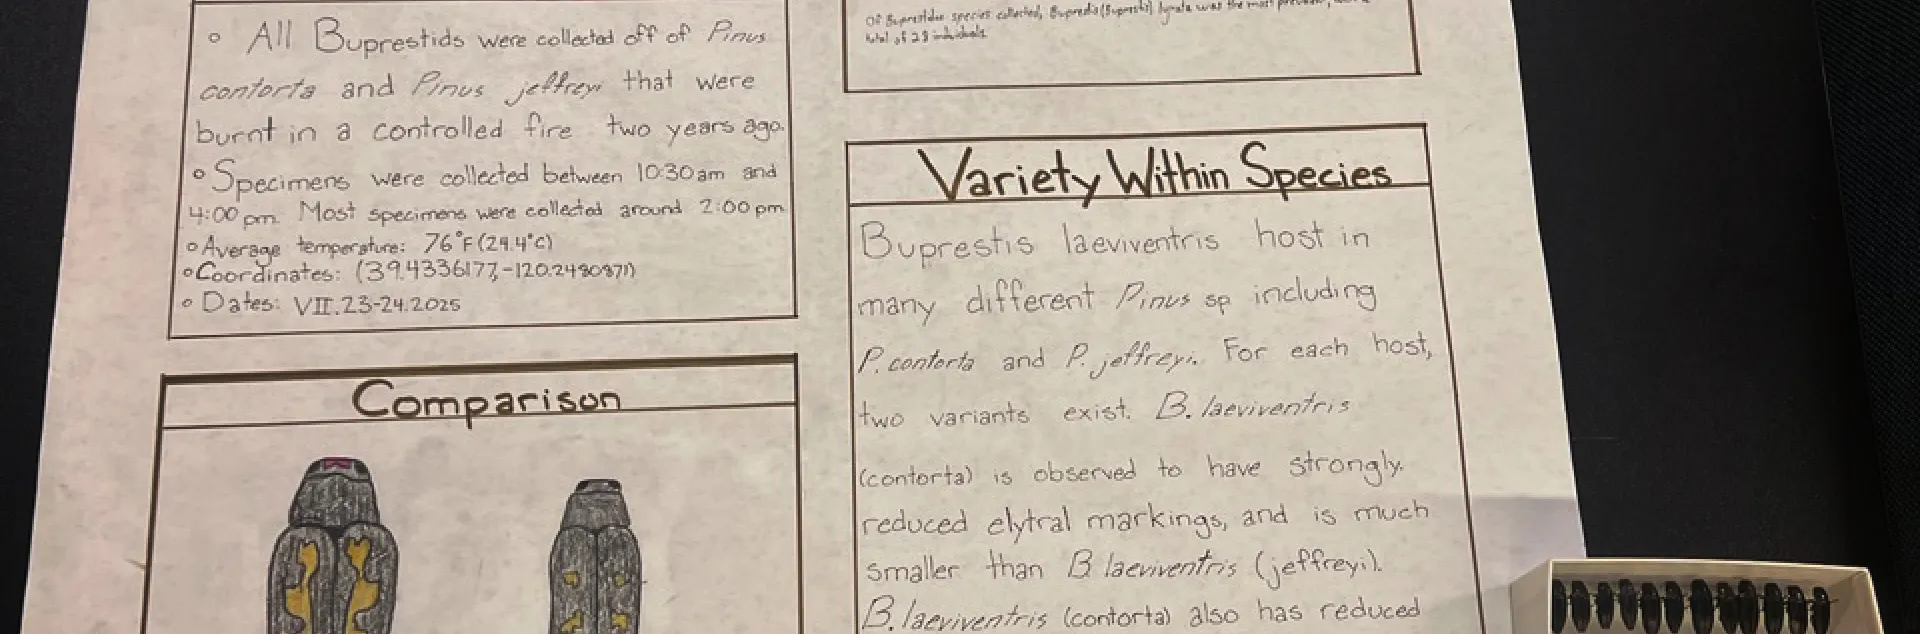 ◦ All Buprestids were collected off of Pinus
contorta and Pinus jeffreyi that were
burnt in a controlled fire two years ago.
◦ Specimens were collected between 10:30am and
4:00 pm. Most specimens were collected around 2:00pm
◦ Average temperature: 76°F (24.4°C)
◦ Coordinates: (39.4336177,-120.2480871)
◦ Dates: VII.23-24.2025
Comparison
Of Buprestidae species collected, Buprestis (Buprestis) lyrata was the most
total of 28 individuals
Variety Within Species
Buprestis laeviventris host in
many different Pinus sp including
P. contorta and P. jeffreyi. For each host,
two variants exist. B. laeviventris
(contorta) is observed to have strongly
reduced elytral markings, and is much
smaller than B. laeviventris (jeffreyi).
B. laeviventris (contorta) also has reduced